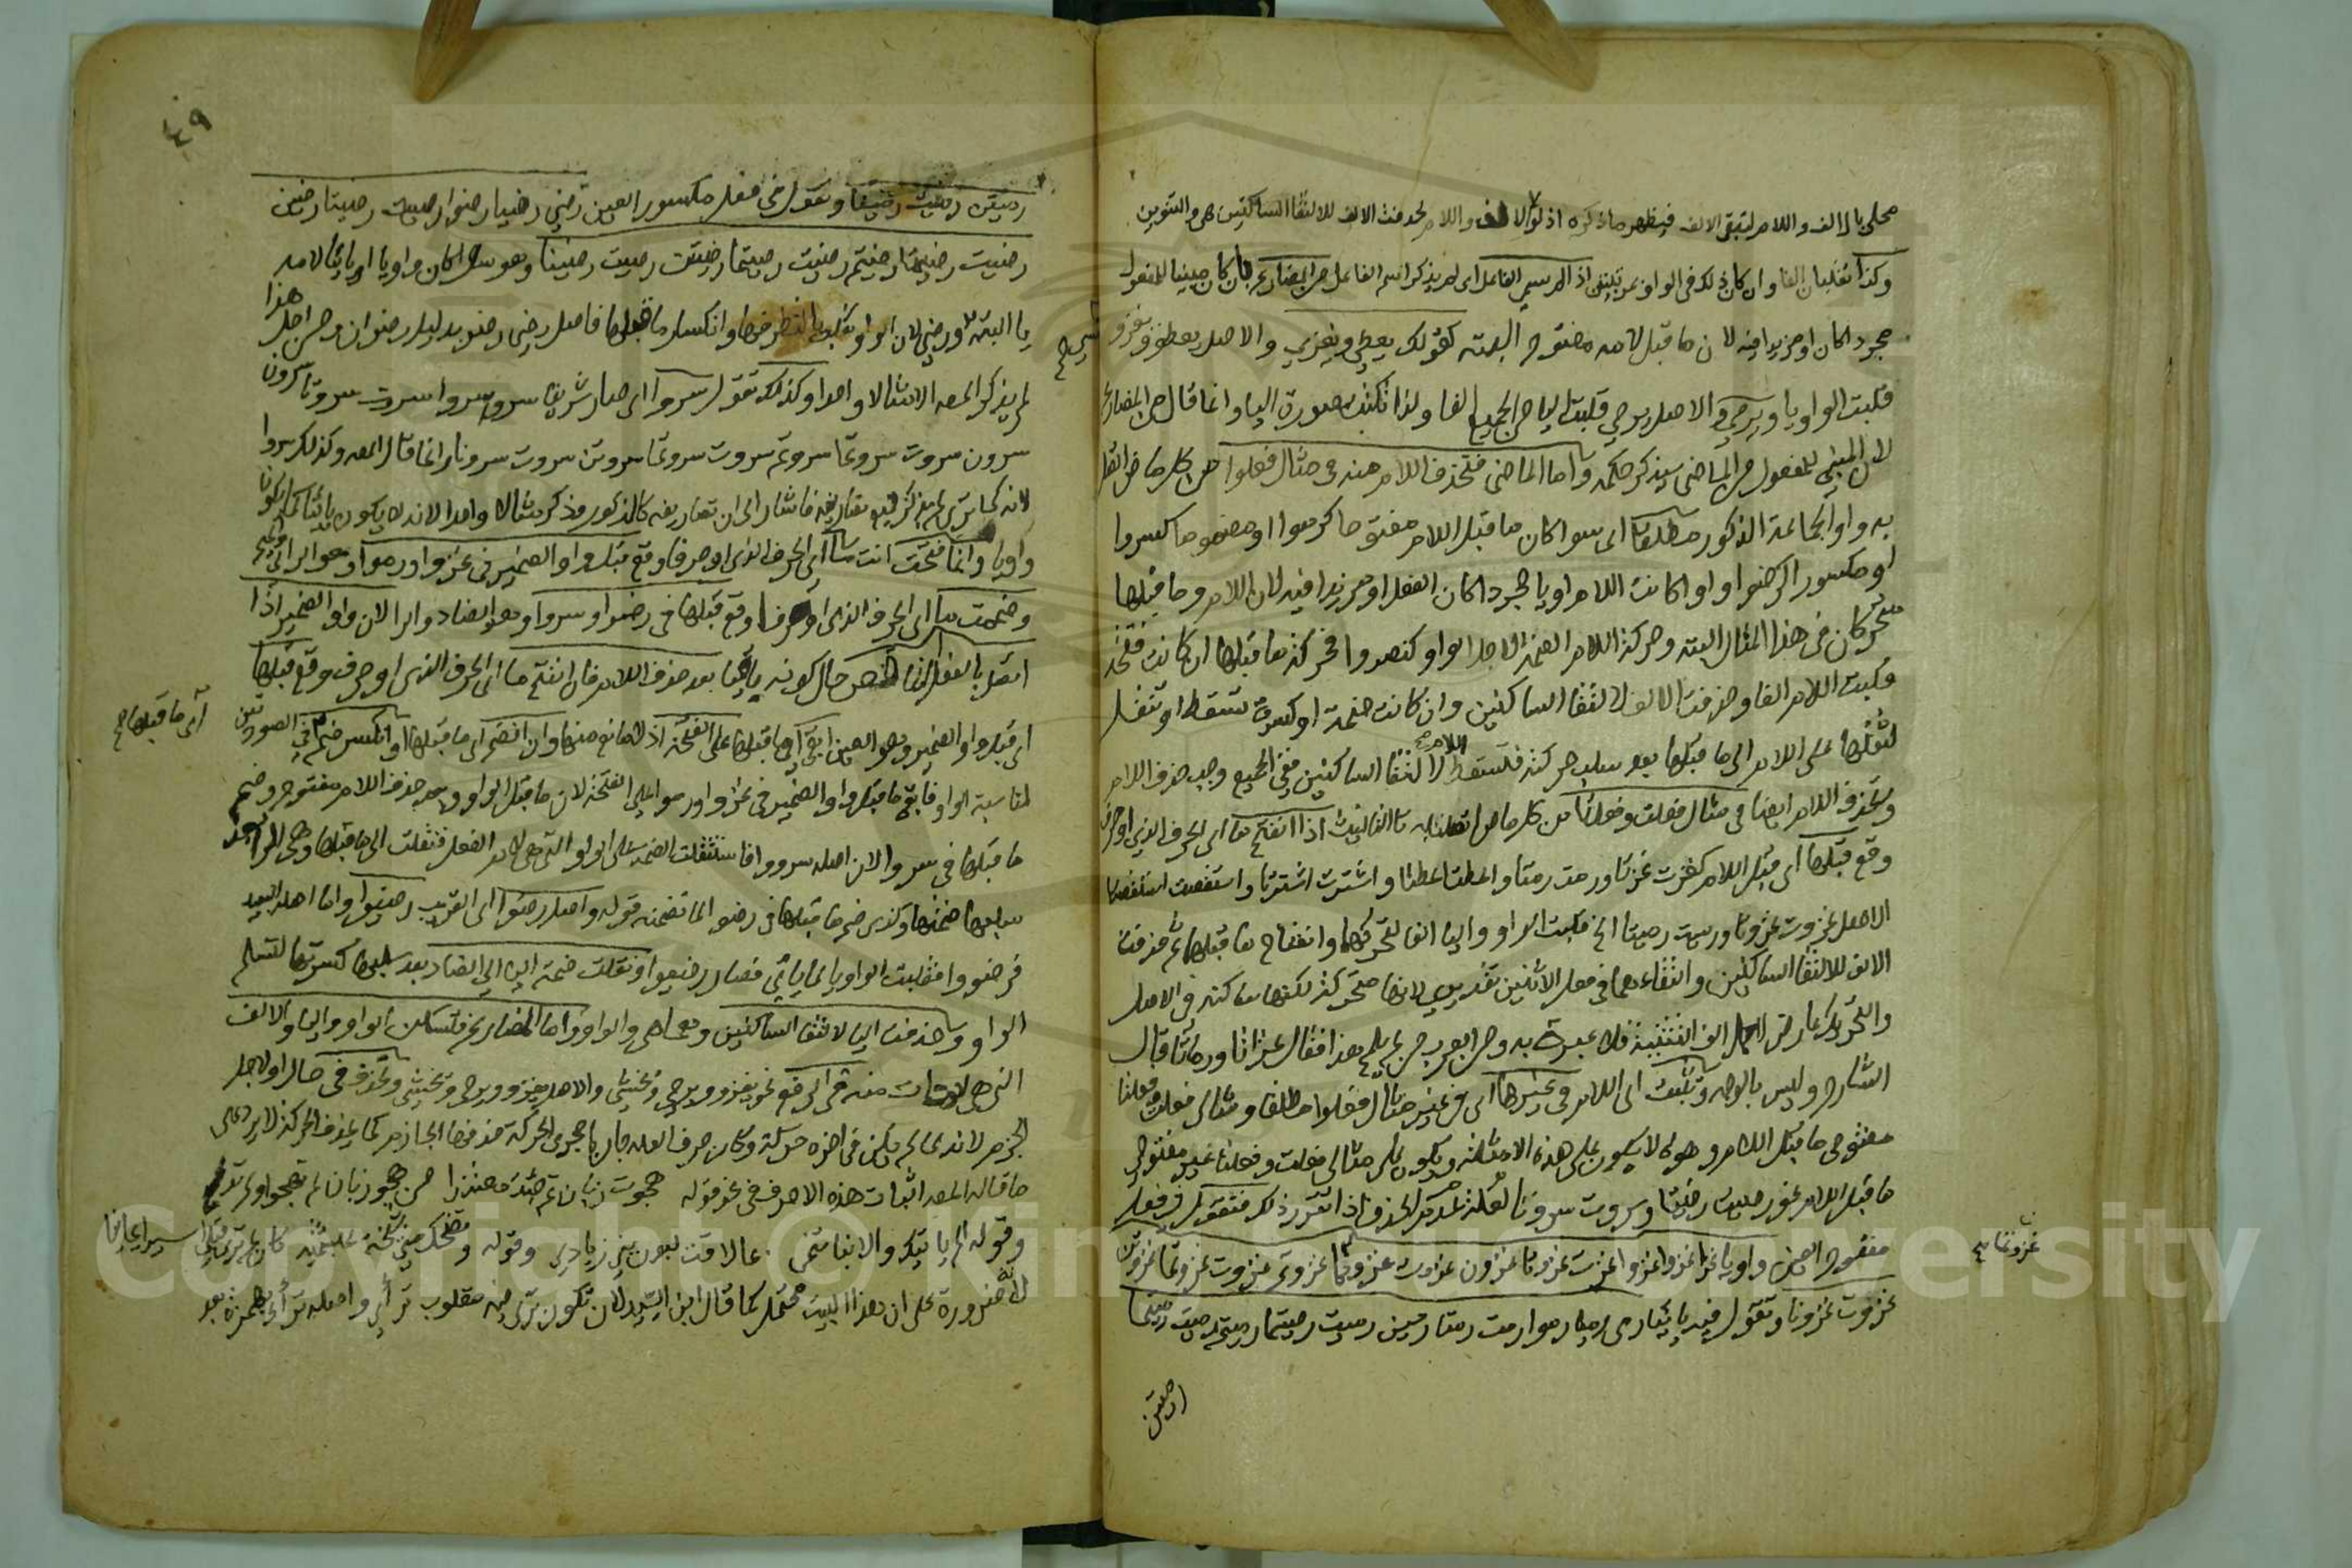 محلى بالالف واللام لتبقى الالف فيظهر ما ذكره اذ لولا الالف واللام لحذفت الالف لالتقاء الساكنين هي والتنوين
وكذا تقلبان الفا وان كان ذلك في الواو بمرتبتين اذا لم يسم الفاعل اي لم يذكر اسم الفاعل من المضارع بان كان مبنيا للمفعول
مجردا كان او مزيدا فيه لان ما قبل لامه مفتوح البتة كقولك يعطى ويغزى والاصل يعطو ويغزو
قلبت الواو يا ويرمى والاصل يرمي قلبت اليا من الجميع الفا ولذا تكتب بصورة اليا وانما قال من المضارع
لان المبني للمفعول من الماضي سيذكر حكمه واما الماضي فتحذف اللام منه في مثال فعلوا من كل ماض اتصل
به واو الجماعة الذكور مطلقا اي سوا كان ما قبل اللام مفتوحا كرموا او مضموما كسروا
او مكسورا كرضوا واوا كانت اللام او يا مجردا كان الفعل او مزيدا فيه لان اللام وما قبلها
متحركان في هذا المثال البتة وحركة اللام الضمة لاجل الواو كنصروا فحركة ما قبلها ان كانت فتحة
قلبت اللام الفا وحذفت الالف لالتقا الساكنين وان كانت ضمة او كسرة تسقط او تنقل
لثقلها على اللام الى ما قبلها بعد سلب حركته فتسقط اللام لالتقا الساكنين ففي الجميع وجب حذف اللام
وتحذف اللام ايضا في مثال فعلت وفعلتا من كل ماض اتصل به تا التانيث اذا انفتح ما اي الحرف الذي او حرف
وقع قبلها اي قبل اللام كغزت غزتا ورمت رمتا واعطت اعطتا واشترت اشترتا واستقصت استقصتا
الاصل غزوت غزوتا ورميت رميتا الخ قلبت الواو واليا الفا لتحركهما وانفتاح ما قبلهما ثم حذفت
الالف لالتقا الساكنين والتقاءهما في فعل الاثنين تقديري لانها متحركة لكنها ساكنة في الاصل
والتحريك عارض لاجل الف التثنية فلا عبرة به ومن العرب من لم يلمح هذا فقال غزاتا ورماتا قال
الشارح وليس بالوجه وتثبت اي اللام في غيرها اي في غير مثال فعلوا مطلقا ومثالي فعلت وفعلتا
مفتوحي ما قبل اللام وهو ما لا يكون على هذه الامثلة ويكون على مثالي فعلت وفعلتا غير مفتوحي
ما قبل اللام نحو رضيت رضيتا وسروت سروتا لعدم الحذف اذا تقرر ذلك فتقول في فعل
مفتوح العين واويا غزا غزوا غزوا غزت غزتا غزون غزوت غزوتما غزوتم غزوت غزوتما غزوتن
غزوتما صح
غزوت غزونا وتقول فيه يائيا رمى رميا رموا رمت رمتا رمين رميت رميتما رميتم رميت رميتما
رميتن
٤٩
رميتن رميت رمينا وتقول في فعل مكسور العين رضي رضيا رضوا رضيت رضيتا رضين
رضيت رضيتما رضيتم رضيت رضيتما رضيتن رضيت رضينا وهو سوا كان واويا او يائيا لامه
يا البتة ورضي لان الواو تقلب لتطرفها وانكسار ما قبلها فاصل رضي رضو بدليل رضوان ومن اجل هذا
لم يذكر المصه الا مثالا واحدا وكذلك تقول سرو اي صار شريفا سروا سروا سروت سروتا سرون
سرون سروت سروتما سروتم سروت سروتما سروتن سروت سرونا وانما قال المصه وكذلك سروا
لانه كما ترى لم يذكر فيه تصاريفه فاشار الى ان تصاريفه كالمذكور وذكر مثالا واحدا لانه لا يكون يائيا كما يكون
واويا وانما فتحت انت ما اي الحرف الذي او حرفا وقع قبل واو الضمير في غزوا ورموا وهو الزاي والميم
وضممت ما اي الحرف الذي او حرفا وقع قبلها في رضوا وسروا وهو الضاد والرا لان واو الضمير اذا
اتصل بالفعل الناقص حال كونه باقيا بعد حذف اللام فان انفتح ما اي الحرف الذي او حرف وقع قبلها
اي قبل واو الضمير وهو العين ابقي اي ما قبلها على الفتحة اذ لا مانع منها وان انضم اي ما قبلها او انكسر ضم في الصورتين
اي ما قبلها صح
لمناسبة الواو فابقي ما قبل واو الضمير في غزوا ورموا على الفتحة لان ما قبل الواو بعد حذف اللام مفتوح وضم
ما قبلها في سروا لان اصله سرووا فاستثقلت الضمة على الواو التي هي لام الفعل فنقلت الى ما قبلها وهي الرا بعد
سلبها ضمتها وكذى ضم ما قبلها في رضوا لما تضمنه قوله واصل رضوا اي القريب رضيوا واما اصله البعيد
فرضووا فقلبت الواو يا لما ياتي فصار رضيوا ونقلت ضمة اليا الى الضاد بعد سلبها كسرتها لتسلم
الواو وحذفت اليا لالتقا الساكنين وهما هي والواو واما المضارع فتسكن الواو واليا والالف
التي هي لامات منه في الرفع نحو يغزو ويرمي ويخشى والاصل يغزو ويرمي ويخشي وتحذف في حال او لاجل
الجزم لانه لما لم يكن في اخره حركة وكان حرف العلة جاريا مجرى الحركة حذفها الجازم كما يحذف الحركة لا يرد على
ما قاله المصه اثبات هذه الاحرف في نحو قوله هجوت زبان ثم جئت معتذرا من هجو زبان لم تهجو ولم تدع
وقوله الم ياتيك والانبا تنمي بما لاقت لبون بني زياد وقوله وتضحك مني شيخة عبشمية كان لم ترى قبلي اسيرا يمانيا
لانه ضرورة على ان هذا البيت محتمل كما قال ابن السيد لان تكون ترى فيه مقلوب ترأى واصله ترأى بهمزة بعد